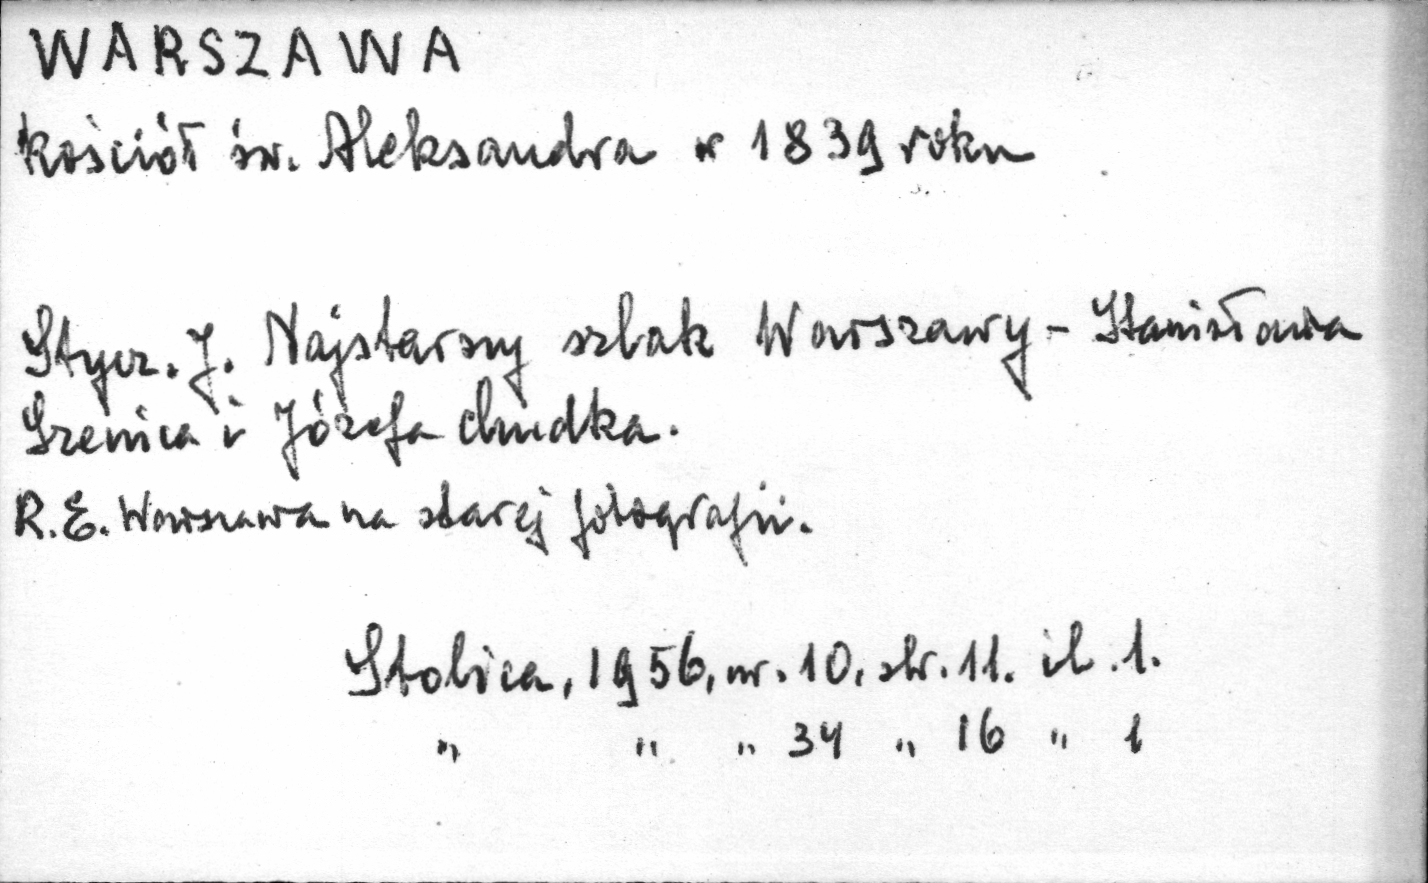 WARSZAWA
kościół św. Aleksandra w 1839 roku
Stycz. J. Najstarszy szlak Warszawy - Stanisława
Szenica i Józefa Chudka.
R.E. Warszawa na starej fotografii.
Stolica, 1956, nr. 10, str. 11. il. 1.
" " " 34 " 16 " 1